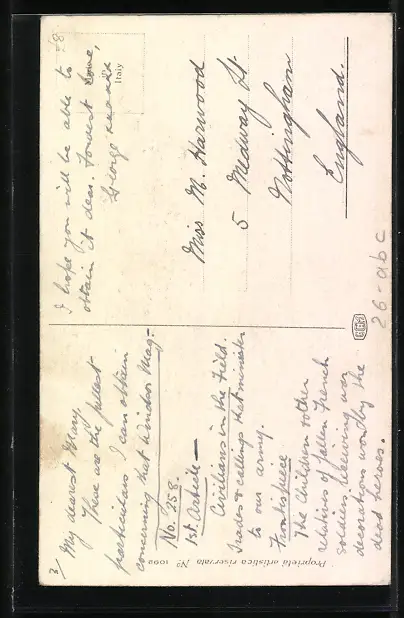 3/
My dearest Mary.
These are the fullest
particulars I can obtain
concerning that Windsor Mag-
No. 258.
1st Article —
Civilians in the Field.
Trades & callings that minister
to our army.
Frontispiece
The Children & other
relatives of fallen French
soldiers receiving war
decorations won by the
dead heroes.
I hope you will be able to
obtain it dear. Fondest love,
George
Italy
Miss M. Harwood
5 Medway St
Nottingham
England.
26-abc
Proprietà artistica riservata Nº